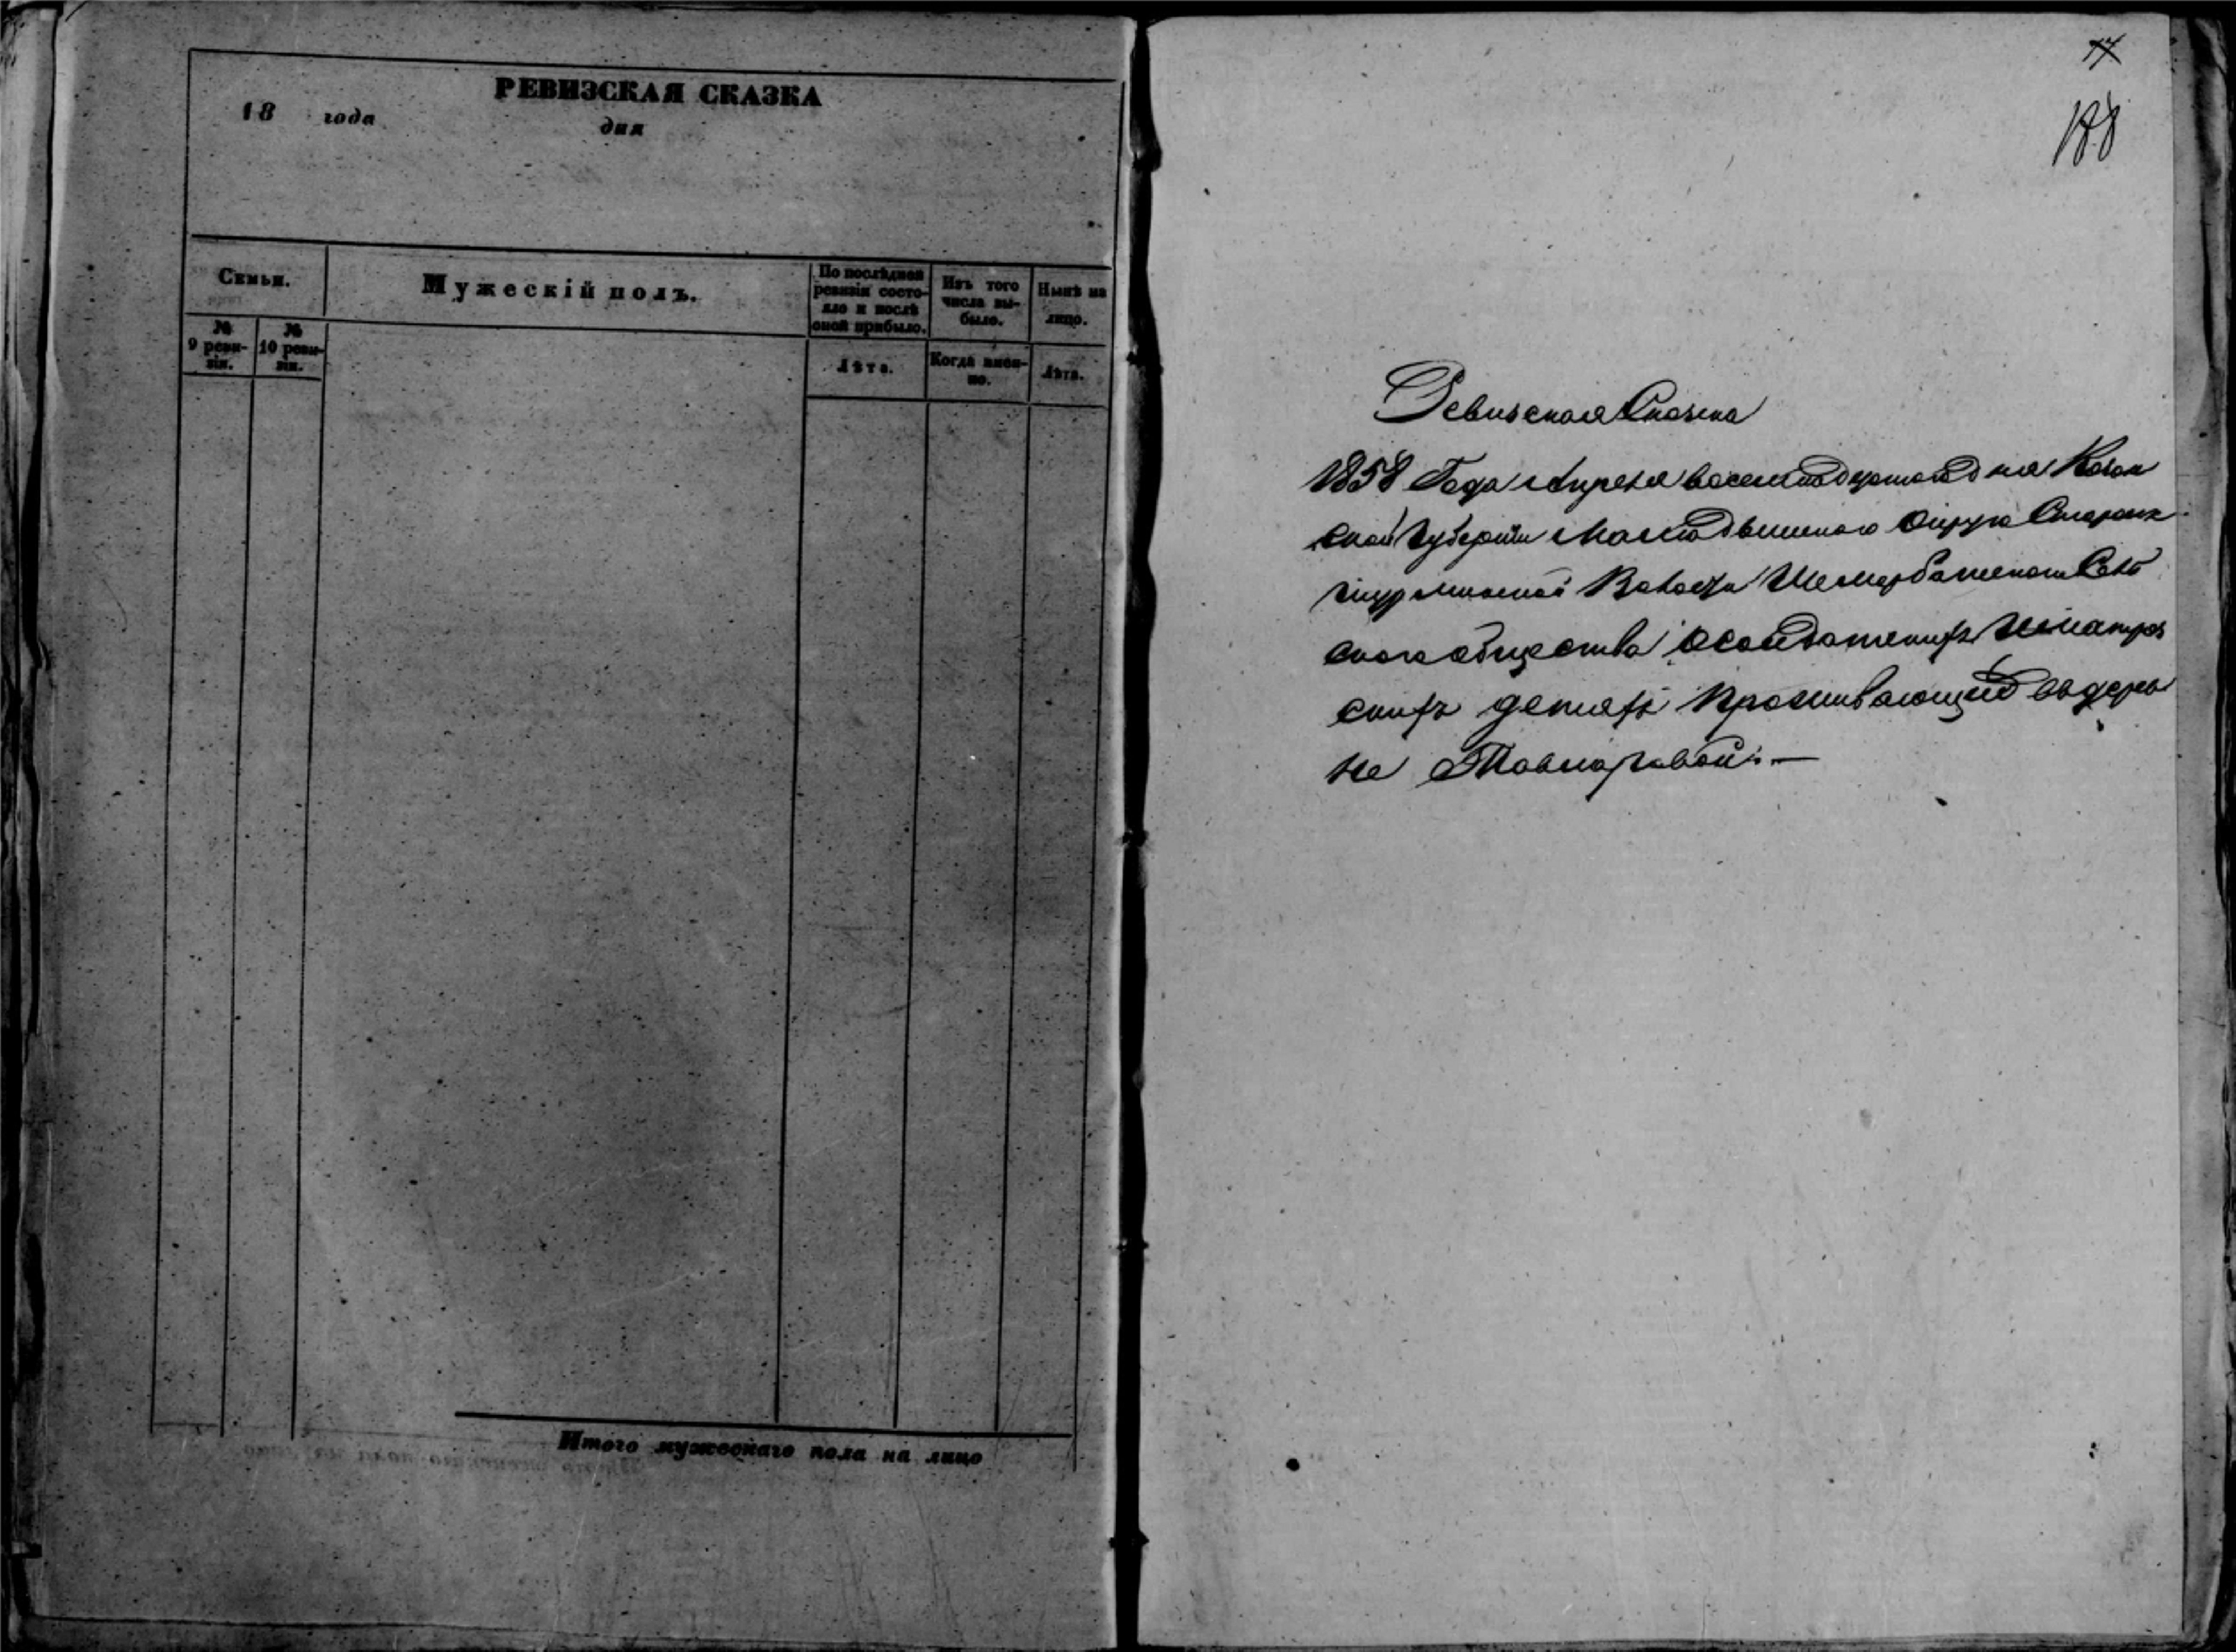 РЕВИЗСКАЯ СКАЗКА
18 года дня
Семьи.
Мужескій полъ.
По послѣдней ревизіи состояло и послѣ оной прибыло.
Изъ того числа выбыло.
Нынѣ на лицо.
№ 9 ревизіи.
№ 10 ревизіи.
Лѣта.
Когда именно.
Лѣта.
Итого мужескаго пола на лицо
17
188
Ревизская Сказка
1858 Года Апреля восемнадцатаго дня Казан
ской Губернии Мамадышскаго Округа
Волости Шемербашскаго Сель
скаго общества Солдатскихъ
скихъ детей проживающий въ дерев
не